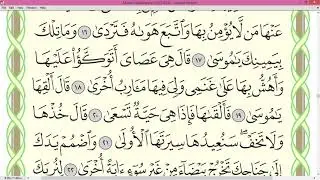 عَنْهَا مَن لَّا يُؤْمِنُ بِهَا وَٱتَّبَعَ هَوَىٰهُ فَتَرْدَىٰ ١٦ وَمَا تِلْكَ
بِيَمِينِكَ يَٰمُوسَىٰ ١٧ قَالَ هِيَ عَصَايَ أَتَوَكَّؤُا۟ عَلَيْهَا
وَأَهُشُّ بِهَا عَلَىٰ غَنَمِي وَلِيَ فِيهَا مَـَٔارِبُ أُخْرَىٰ ١٨ قَالَ أَلْقِهَا
يَٰمُوسَىٰ ١٩ فَأَلْقَىٰهَا فَإِذَا هِيَ حَيَّةٌ تَسْعَىٰ ٢٠ قَالَ خُذْهَا
وَلَا تَخَفْ سَنُعِيدُهَا سِيرَتَهَا ٱلْأُولَىٰ ٢١ وَٱضْمُمْ يَدَكَ
إِلَىٰ جَنَاحِكَ تَخْرُجْ بَيْضَآءَ مِنْ غَيْرِ سُوٓءٍ ءَايَةً أُخْرَىٰ ٢٢ لِنُرِيَكَ